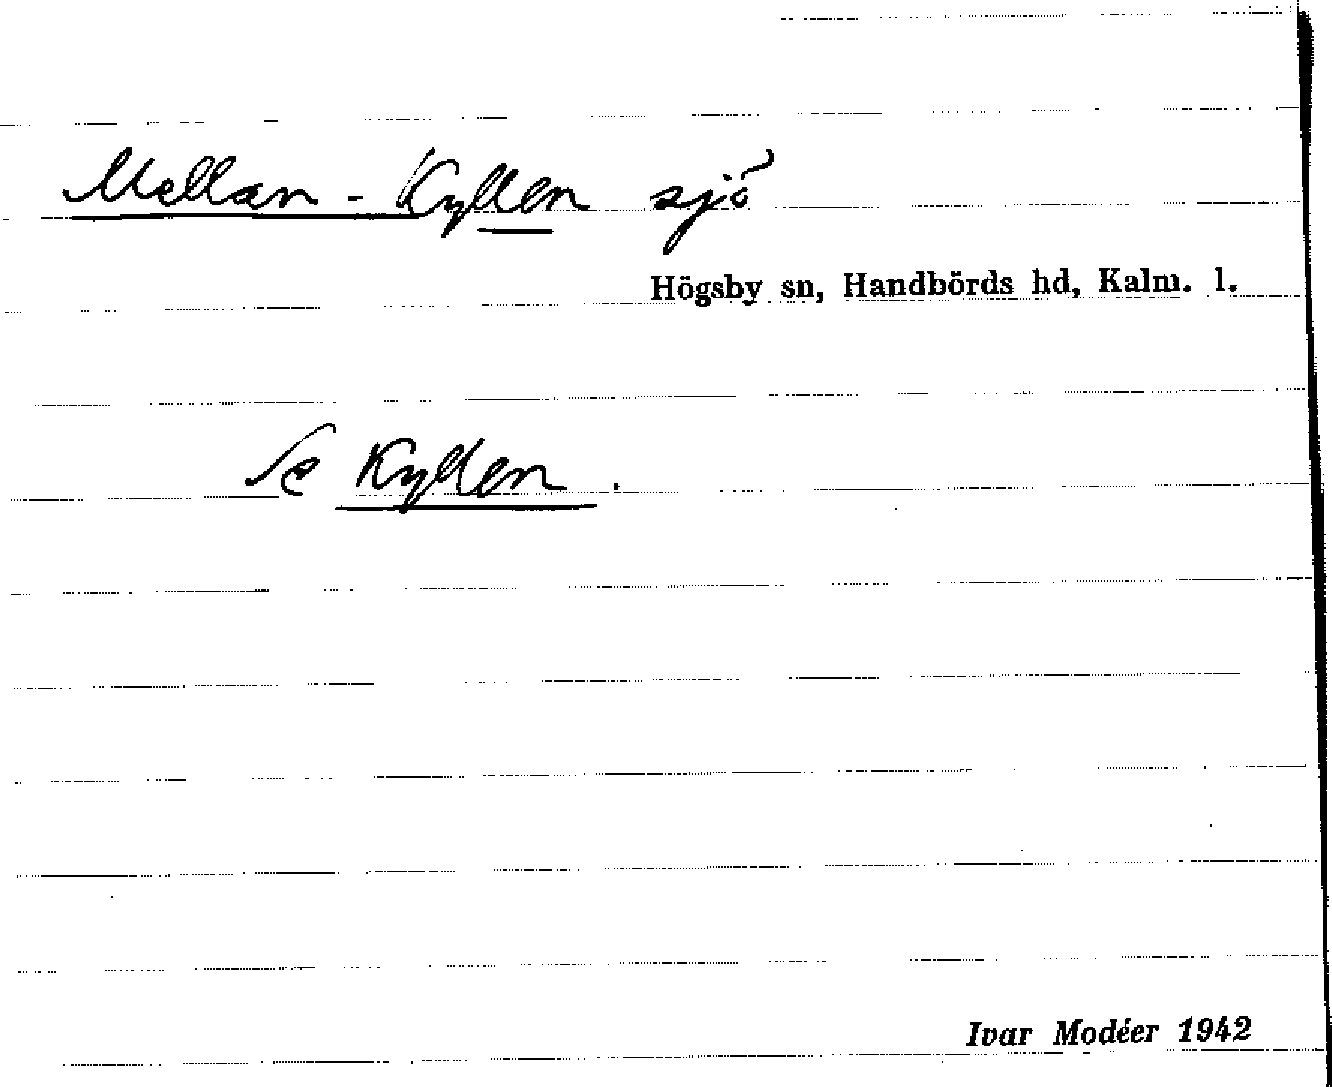 Mellan-Kyllen sjö
Högsby sn, Handbörds hd, Kalm. l.
Se Kyllen.
Ivar Modéer 1942